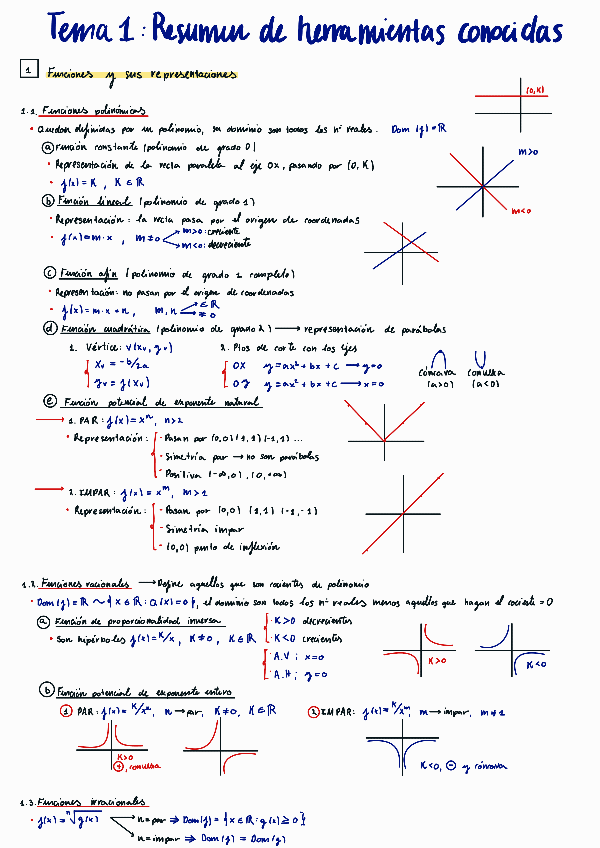 Tema 1: Resumen de herramientas conocidas
1 Funciones y sus representaciones
1.1. Funciones polinómicas
• Quedan definidas por un polinomio, su dominio son todos los nº reales. Dom (f) = ℝ
(0,K)
ⓐ Función constante (polinomio de grado 0)
• Representación de la recta paralela al eje Ox, pasando por (0, K)
• f(x) = K, K ∈ ℝ
m>0
m<0
ⓑ Función lineal (polinomio de grado 1)
• Representación: la recta pasa por el origen de coordenadas
• f(x) = m·x, m≠0
m>0: creciente
m<0: decreciente
ⓒ Función afín (polinomio de grado 1 completo)
• Representación: no pasan por el origen de coordenadas
• f(x) = m·x + n, m, n
∈ ℝ
≠ 0
ⓓ Función cuadrática (polinomio de grado 2) → representación de parábolas
1. Vértice: V(xv, yv)
xv = -b/2a
yv = f(xv)
2. Ptos de corte con los ejes
OX y=ax² + bx + c → y=0
OY y=ax² + bx + c → x=0
cóncava (a>0)
convexa (a<0)
ⓔ Función potencial de exponente natural
→ 1. PAR: f(x) = xⁿ, n>2
• Representación:
· Pasan por (0,0) (1,1) (-1,1) ...
· Simetría par → no son parábolas
· Positiva (-∞,0), (0,+∞)
→ 2. IMPAR: f(x) = xᵐ, m>1
• Representación:
· Pasan por (0,0) (1,1) (-1,-1)
· Simetría impar
· (0,0) punto de inflexión
1.2. Funciones racionales → Define aquellos que son cocientes de polinomio
• Dom(f) = ℝ ~ { x ∈ ℝ : Q(x) = 0 }, el dominio son todos los nº reales menos aquellos que hagan el cociente = 0
ⓐ Función de proporcionalidad inversa
• Son hipérbolas f(x) = K/x, K≠0, K ∈ ℝ
· K>0 decrecientes
· K<0 crecientes
· A.V ; x=0
· A.H ; y=0
K>0
K<0
ⓑ Función potencial de exponente entero
① PAR: f(x) = K/xⁿ, n → par, K≠0, K ∈ ℝ
② IMPAR: f(x) = K/xᵐ, m → impar, m≠1
K>0
⊕, convexa
K<0, ⊖ y cóncava
1.3. Funciones irracionales
• f(x) = ⁿ√g(x)
n=par ⇒ Dom(f) = { x ∈ ℝ : g(x) ≥ 0 }
n=impar ⇒ Dom(f) = Dom(g)